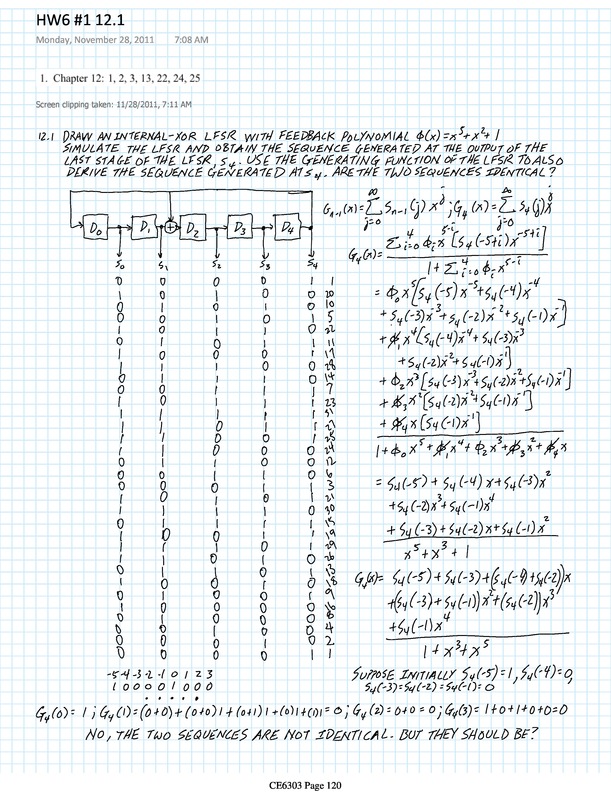 HW6 #1 12.1
Monday, November 28, 2011 7:08 AM
1. Chapter 12: 1, 2, 3, 13, 22, 24, 25
Screen clipping taken: 11/28/2011, 7:11 AM
12.1 DRAW AN INTERNAL-XOR LFSR WITH FEEDBACK POLYNOMIAL Φ(x)=x⁵+x²+1
SIMULATE THE LFSR AND OBTAIN THE SEQUENCE GENERATED AT THE OUTPUT OF THE
LAST STAGE OF THE LFSR, S₄. USE THE GENERATING FUNCTION OF THE LFSR TO ALSO
DERIVE THE SEQUENCE GENERATED AT S₄. ARE THE TWO SEQUENCES IDENTICAL?
D₀ D₁ ⊕ D₂ D₃ D₄
S₀ S₁ S₂ S₃ S₄
0 0 0 0 1 1
1 0 1 0 0 20
0 1 0 1 0 10
0 0 1 0 1 5
1 0 1 1 0 22
0 1 0 1 1 11
1 0 0 0 1 17
1 1 1 0 0 28
0 1 1 1 0 14
0 0 1 1 1 7
1 0 1 1 1 23
1 1 1 1 1 31
1 1 0 1 1 27
1 1 0 0 1 25
1 1 0 0 0 24
0 1 1 0 0 12
0 0 1 1 0 6
0 0 0 1 1 3
1 0 1 0 1 21
1 1 1 1 0 30
0 1 1 1 1 15
1 0 0 1 1 19
1 1 1 0 1 29
1 1 0 1 0 26
0 1 1 0 1 13
1 0 0 1 0 18
0 1 0 0 1 9
1 0 0 0 0 16
0 1 0 0 0 8
0 0 1 0 0 4
0 0 0 1 0 2
0 0 0 0 1 1
Gₙ₋₁(x)=∑_{j=0}^{∞} Sₙ₋₁(j)x^j; G₄(x)=∑_{j=0}^{∞} S₄(j)x^j
G₄(x)= ∑_{i=0}^{4} Φᵢx^{5-i}[S₄(-5+i)x^{-5+i}]
1+∑_{i=0}^{4} Φᵢx^{5-i}
= Φ₀x⁵[S₄(-5)x⁻⁵+S₄(-4)x⁻⁴
+S₄(-3)x⁻³+S₄(-2)x⁻²+S₄(-1)x⁻¹]
+Φ₁x⁴[S₄(-4)x⁻⁴+S₄(-3)x⁻³
+S₄(-2)x⁻²+S₄(-1)x⁻¹]
+Φ₂x³[S₄(-3)x⁻³+S₄(-2)x⁻²+S₄(-1)x⁻¹]
+Φ₃x²[S₄(-2)x⁻²+S₄(-1)x⁻¹]
+Φ₄x[S₄(-1)x⁻¹]
1+Φ₀x⁵+Φ₁x⁴+Φ₂x³+Φ₃x²+Φ₄x
= S₄(-5)+S₄(-4)x+S₄(-3)x²
+S₄(-2)x³+S₄(-1)x⁴
+S₄(-3)+S₄(-2)x+S₄(-1)x²
x⁵+x³+1
G₄(x)= S₄(-5)+S₄(-3)+(S₄(-4)+S₄(-2))x
+(S₄(-3)+S₄(-1))x²+(S₄(-2))x³
+S₄(-1)x⁴
1+x³+x⁵
SUPPOSE INITIALLY S₄(-5)=1, S₄(-4)=0,
S₄(-3)=S₄(-2)=S₄(-1)=0
-5 -4 -3 -2 -1 0 1 2 3
1 0 0 0 0 1 0 0 0
G₄(0)= 1; G₄(1)=(0+0)+(0+0)1+(0+1)1+(0)1+(1)1=0; G₄(2)=0+0=0; G₄(3)=1+0+1+0+0=0
NO, THE TWO SEQUENCES ARE NOT IDENTICAL. BUT THEY SHOULD BE?
CE6303 Page 120